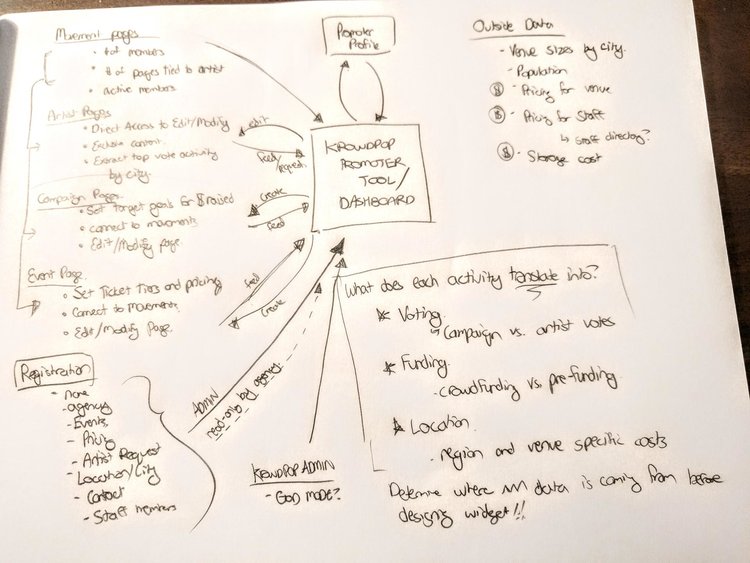 Movement pages
• # of members
• # of pages tied to artist
• active members
Artist Pages
• Direct Access to Edit/Modify
• Exclusive content
• Extract top vote activity
by city.
Campaign Pages
• Set target goals for $ raised
• connect to movements
• Edit/Modify page.
Event Page
• Set Ticket Tiers and pricing
• Connect to Movements
• Edit/Modify Page.
Registration
- name
- agency
- Events
- Pricing
- Artist Request
- Location/City
- Contact
- Staff members
Promoter
Profile
KROWDPOP
PROMOTER
TOOL/
DASHBOARD
edit
feed/
request
create
feed
feed
create
ADMIN
read-only by agency
KROWDPOP ADMIN
- GOD MODE?
Outside Data
- Venue sizes by city.
- Population
$ - Pricing for venue
$ - Pricing for Staff
↳ staff directory?
$ - Storage cost
What does each activity translate into?
* Voting
↳ Campaign vs. artist votes
* Funding
- crowdfunding vs pre-funding
* Location
- region and venue specific costs
Determine where data is coming from before
designing widget!!